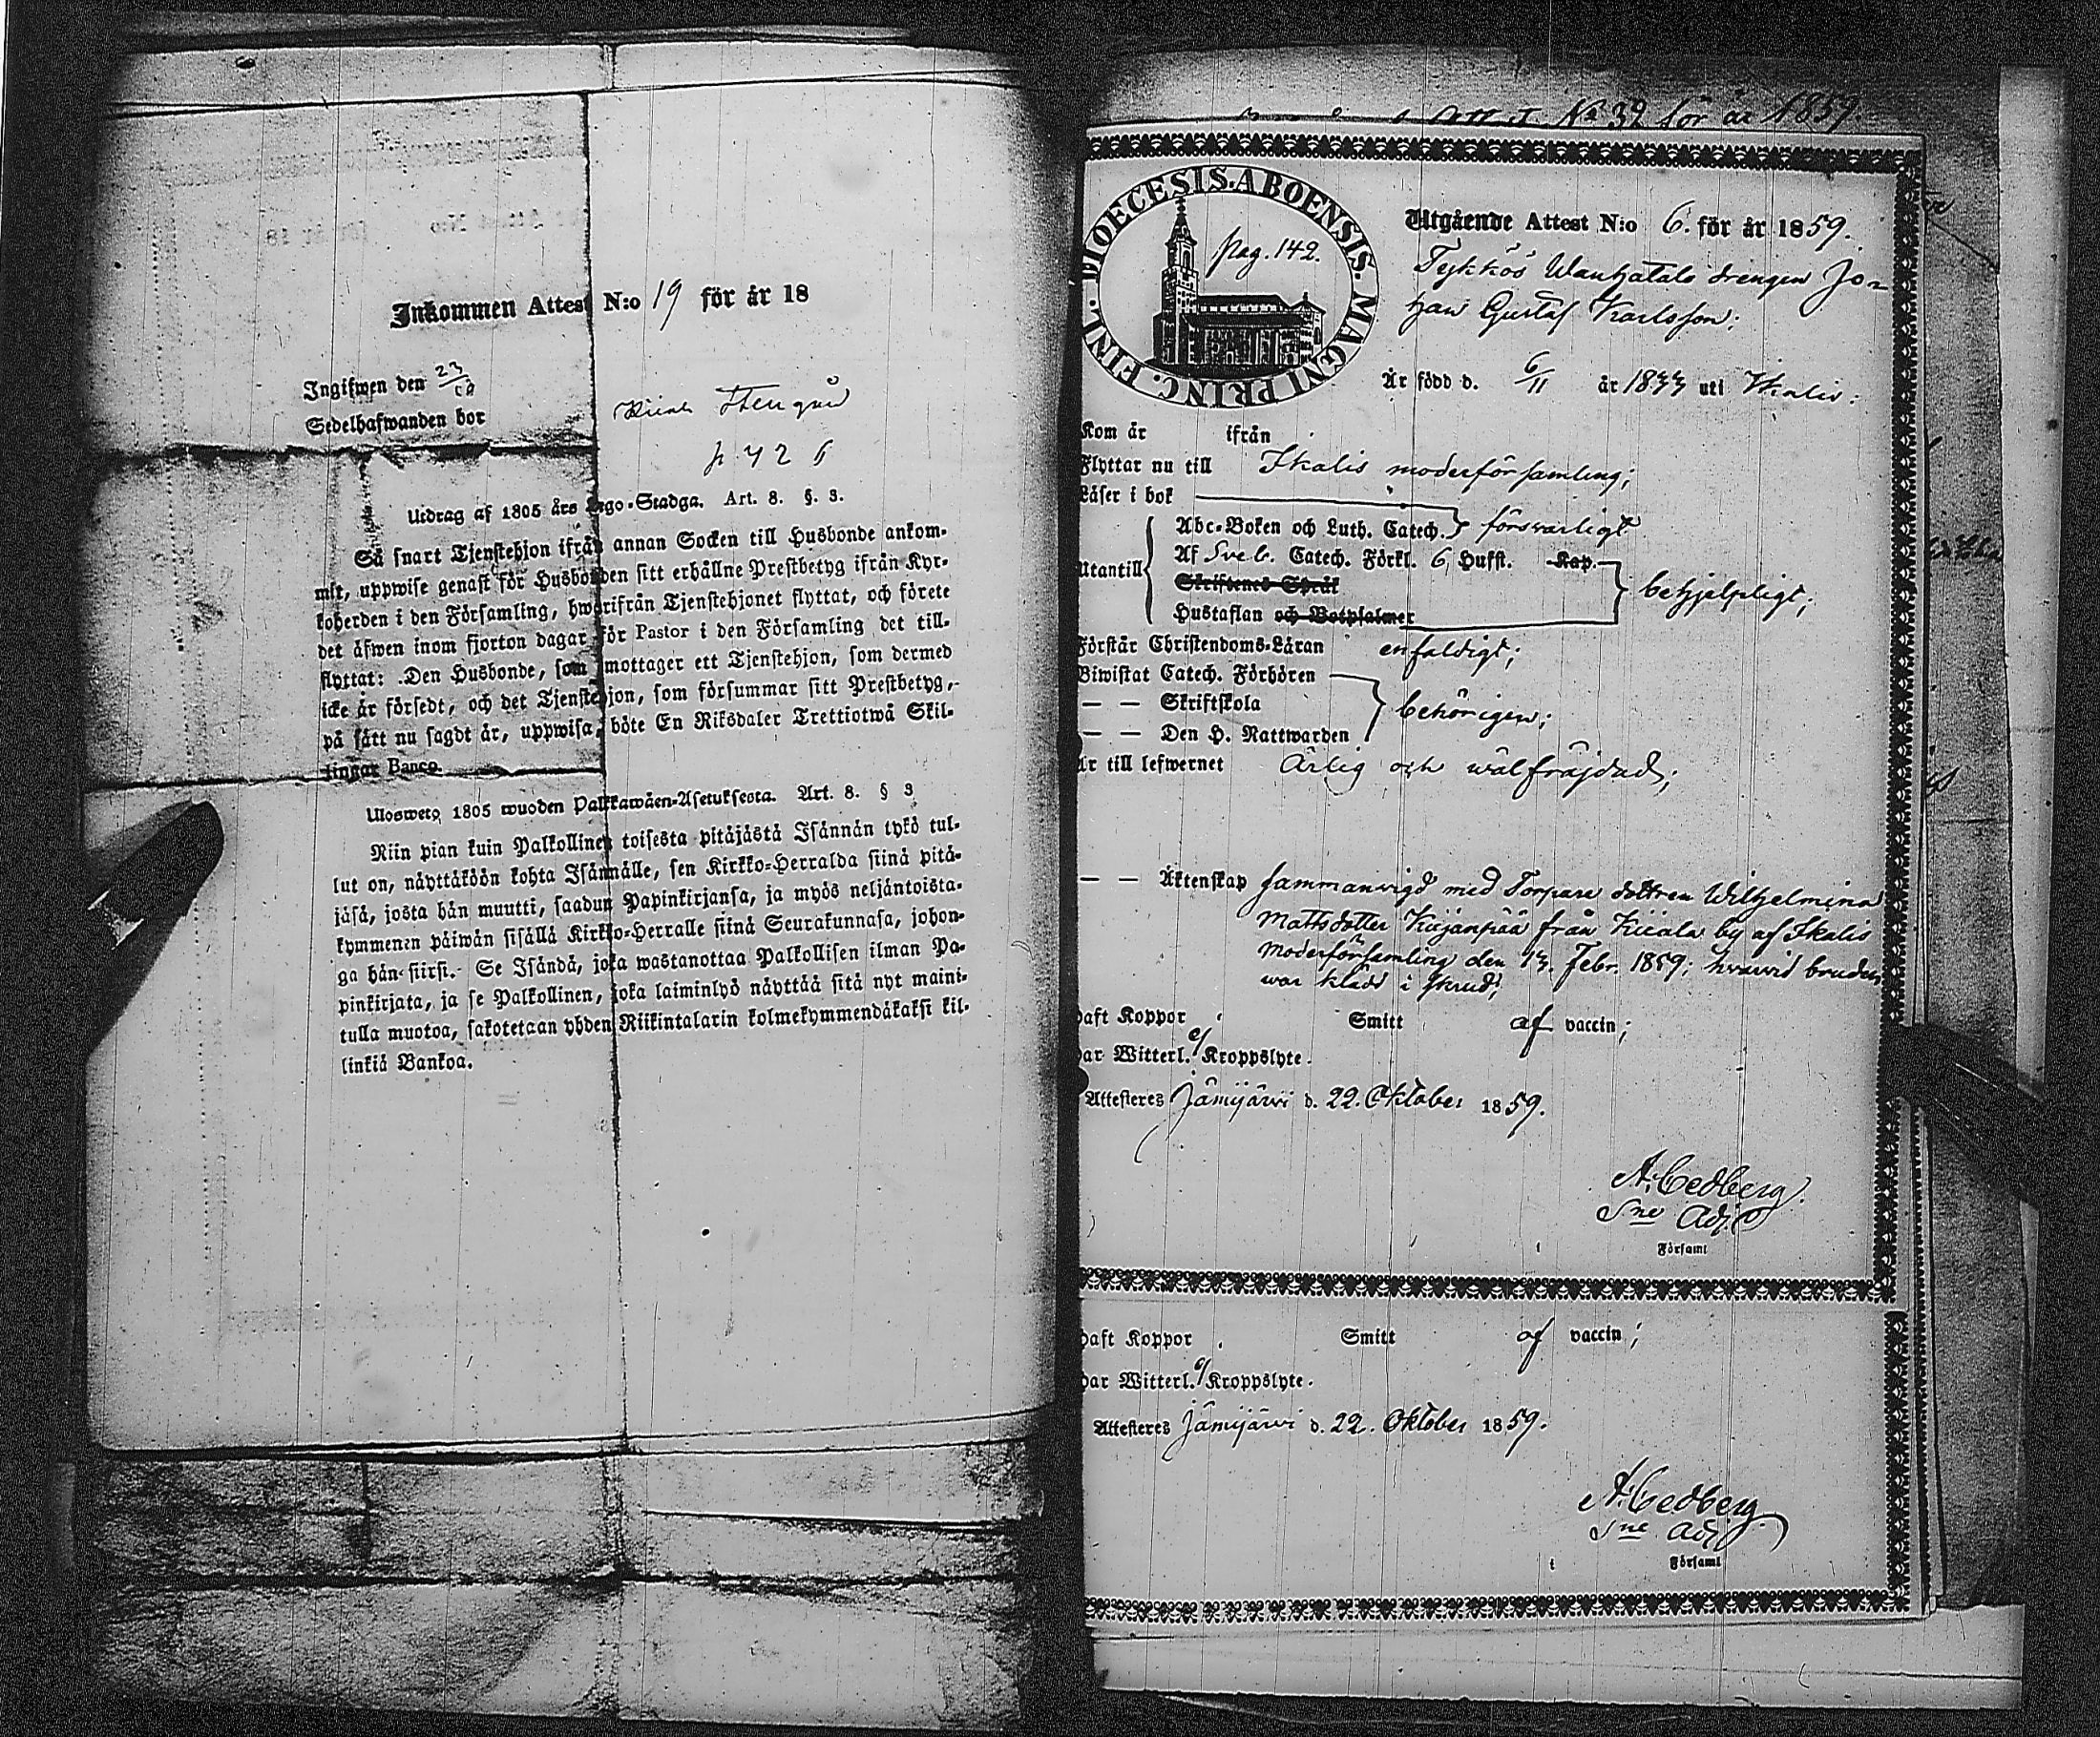 Inkommen Attest N:o 19 för år 18
Ingifwen den 23/10
Sedelhafwanden bor
p 426
Utdrag af 1805 års Lego-Stadga. Art. 8. §. 3.
Så snart Tjenstehjon ifrån annan Socken till Husbonde ankom-
mit, uppwise genast för Husbonden sitt erhållne Prestbetyg ifrån Kyr-
koherden i den Församling, hwarifrån Tjenstehjonet flyttat, och förete
det äfwen inom fjorton dagar för Pastor i den Församling det till-
flyttat: Den Husbonde, som mottager ett Tjenstehjon, som dermed
icke är försedt, och det Tjenstehjon, som försummar sitt Prestbetyg,
på sätt nu sagdt är, uppwisa, böte En Riksdaler Trettiotwå Skil-
lingar Banco.
Ulosweto 1805 wuoden Palkkawäen-Asetuksesta. Art. 8. § 3
Niin pian kuin Palkollinen toisesta pitäjästä Isännän tykö tul-
lut on, näyttäköön kohta Isännälle, sen Kirkko-Herralda siinä pitä-
jäsä, josta hän muutti, saadun Papinkirjansa, ja myös neljäntoista-
kymmenen päiwän sisällä Kirkko-Herralle siinä Seurakunnasa, johon-
ga hän siirsi. Se Isändä, joka wastanottaa Palkollisen ilman Pa-
pinkirjata, ja se Palkollinen, joka laiminlyö näyttää sitä nyt maini-
tulla muotoa, sakotetaan yhden Riikintalarin kolmekymmendäkaksi kil-
linkiä Bankoa.
Attest No 32 för år 1859.
DIOECESIS ABOENSIS. MAGNI PRINC. FINL.
pag. 142.
Utgående Attest N:o 6. för år 1859.
Tykkös Wanhatalo drengen Jo-
han Gustaf Karlsson;
Är född d. 6/11 år 1833 uti Ikalis:
Kom år ifrån
Flyttar nu till Ikalis moderförsamling;
Läser i bok
Abc-Boken och Luth. Catech. försvarligt
Utantill Af Sveb. Catech. Förkl. 6 Hufst. Kap.
Skriftenes Språk
Hustaflan och Botpsalmer
behjelpligt;
Förstår Christendoms-Läran enfaldigt;
Biwistat Catech. Förhören
— — Skriftskola
— — Den H. Nattwarden
behörigen;
Är till lefwernet Ärlig och wälfräjdad;
— — Äktenskap sammanvigd med Torpare dottren Wilhelmina
Mattsdotter Kiijanpää från Kiiala by af Ikalis
Moderförsamling den 13. Febr. 1859; hvarvid bruden
war klädd i skrud;
haft Koppor Smitt af vaccin;
har Witterl. e/ Kroppslyte.
Attesteras Jämijärvi d. 22. Oktober 1859.
A. Cedberg.
Sne Adj.
i Församl
haft Koppor Smitt af vaccin;
har Witterl. e/ Kroppslyte.
Attesteras Jämijärvi d. 22. Oktober 1859.
A. Cedberg.
Sne Adj
i Församl